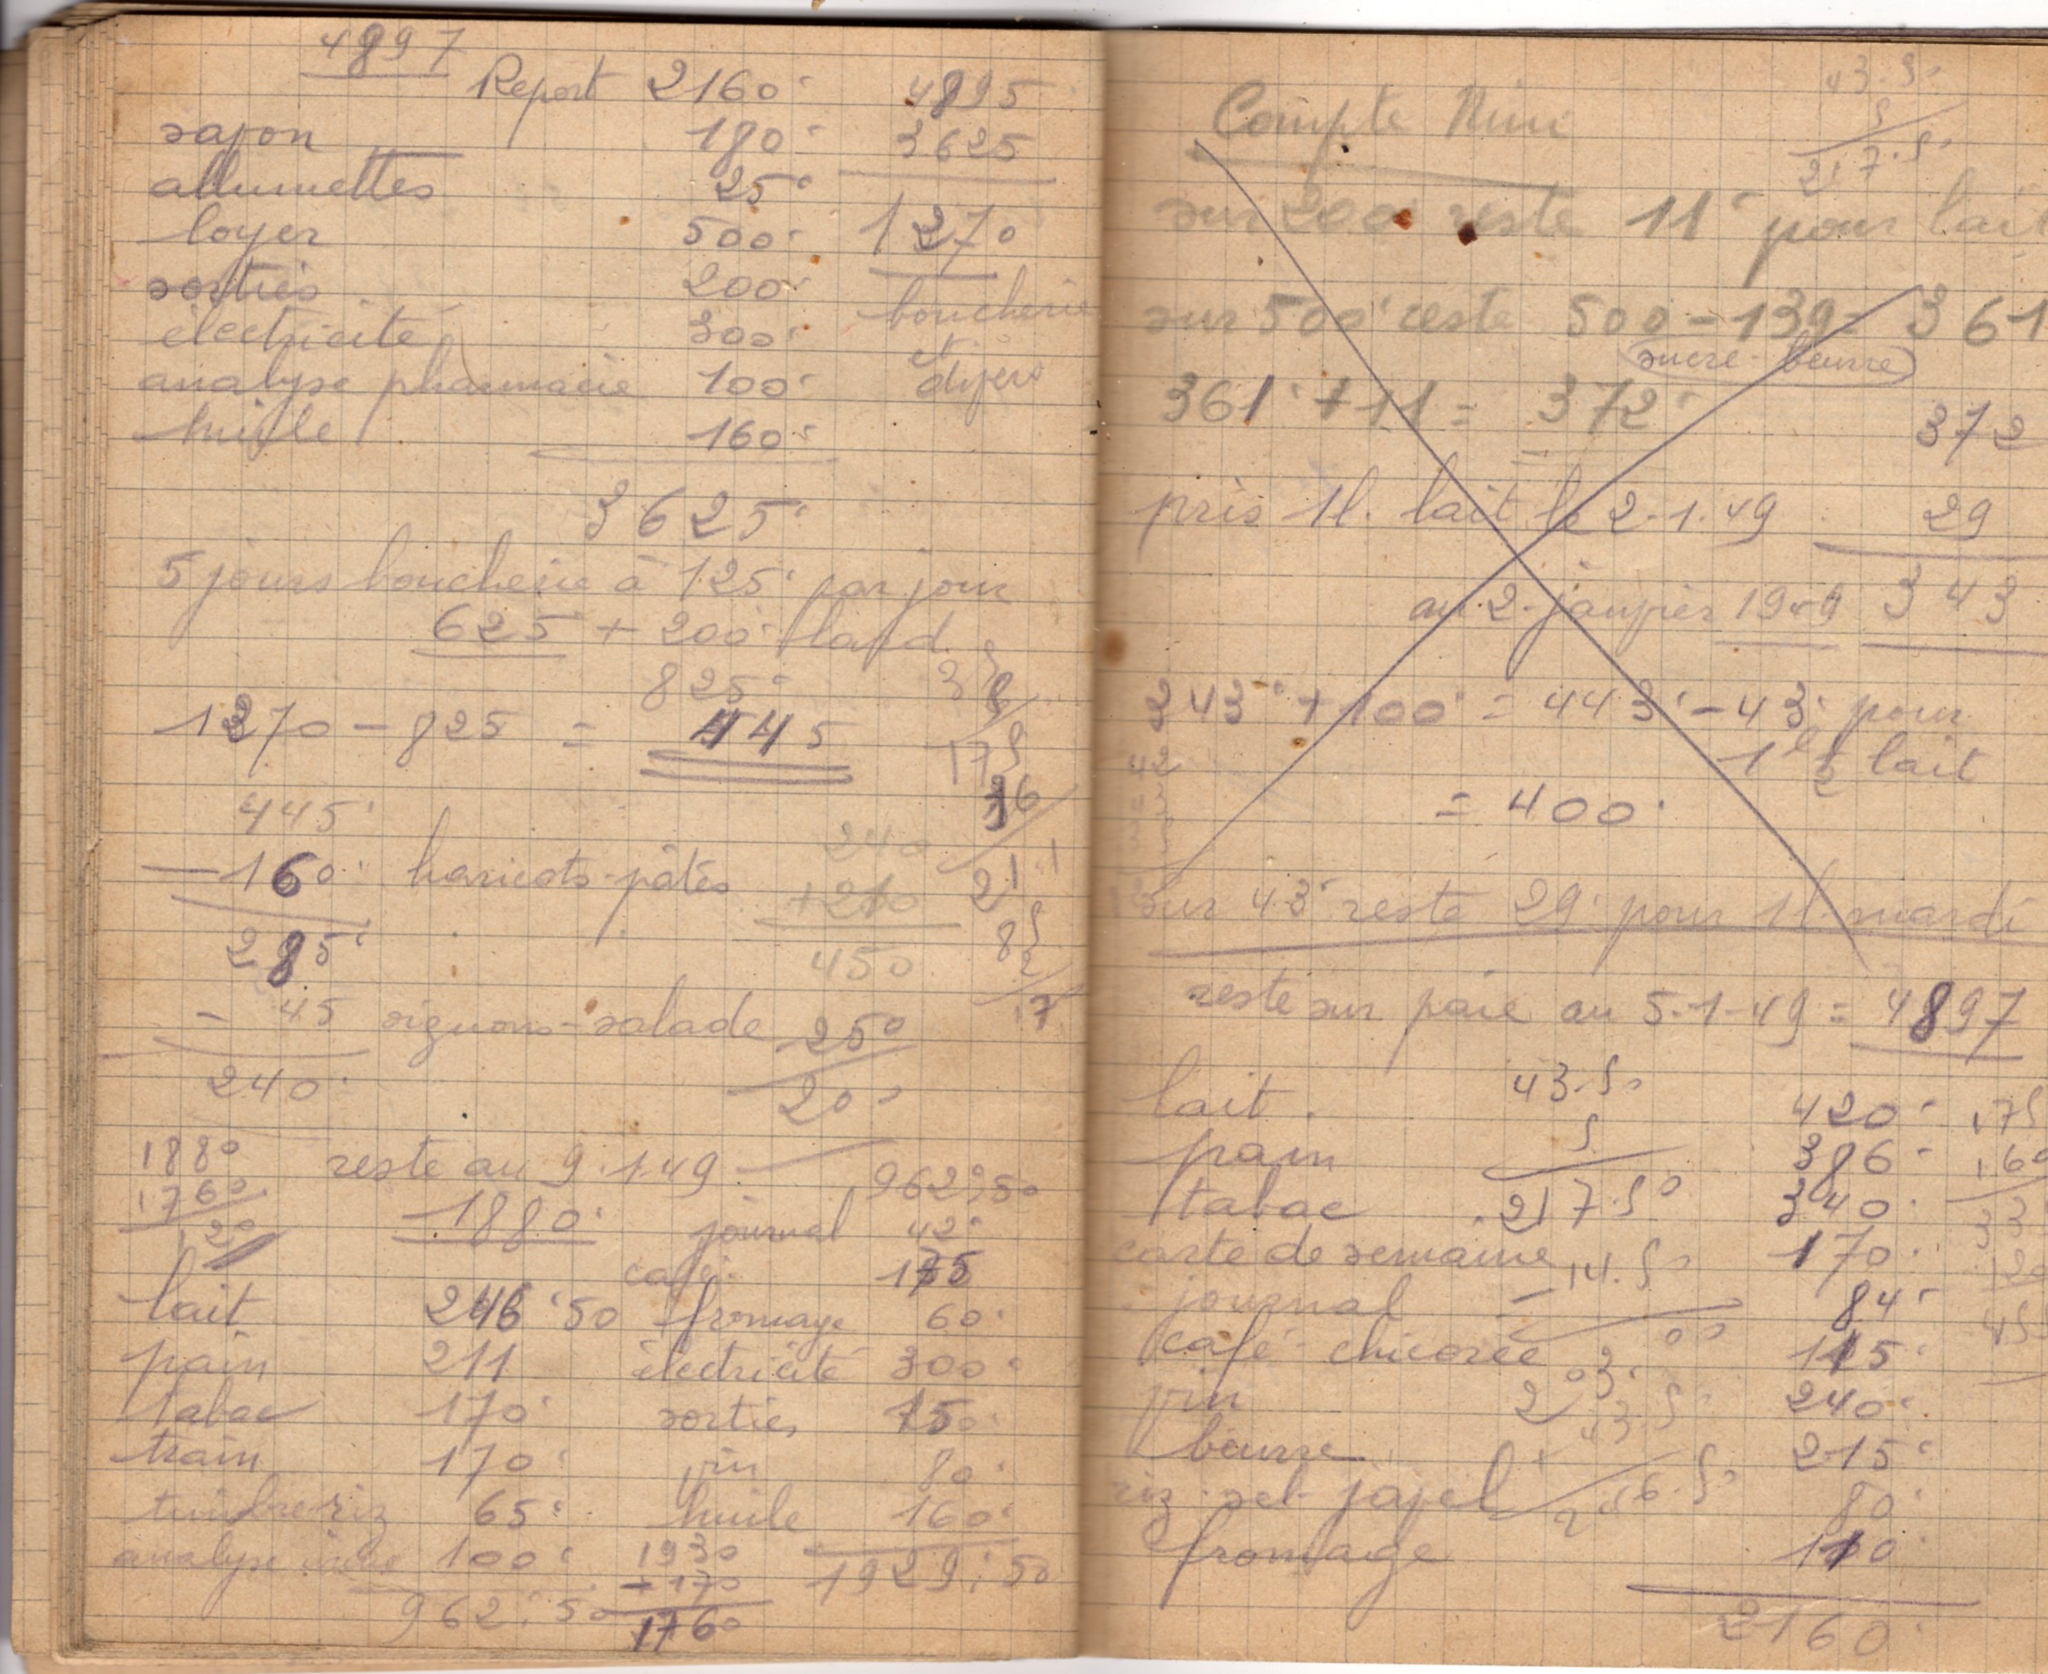 4897
Report 2160 4895
savon 180 3625
allumettes 25
loyer 500 1270
sorties 200 boucherie
électricité 300 et
analyse pharmacie 100 divers
huile 160
3625
5 jours boucherie à 125 par jour
625 + 200 lard
825
1270 - 825 = 445
35
5
175
36
211
445
- 160 haricots-pâtes
285
- 45 oignons-salade
240
240
+210
450
250
200
85
2
17
1880
1760
120
reste au 9.1.49
1880
962,50
journal 42
café 175
lait 246,50 fromage 60
pain 211 électricité 300
tabac 170 sorties 150
train 170 vin 80
timbre riz 65 huile 160
analyse 100 1929,50
962,50
1930
-170
1760
Compte Mimi
43.5
5
217.5
sur 200 reste 11 pour lait
sur 500 reste 500 - 139 = 361
(sucre - beurre)
361 + 11 = 372
372
pris 1l. lait le 2-1-49 29
au 2 janvier 1949 343
343 + 100 = 443 - 43 pour
1 l ½ lait
= 400
sur 43 reste 29 pour 1l. mardi
reste sur paie au 5-1-49 = 4897
lait 420
pain 386
tabac 340
carte de semaine 170
journal 84
café-chicorée 115
vin 240
beurre 215
riz-sel-javel 80
fromage 110
2160
43.50
5
217.50
- 14.50
203.00
43.50
246.50
175
160